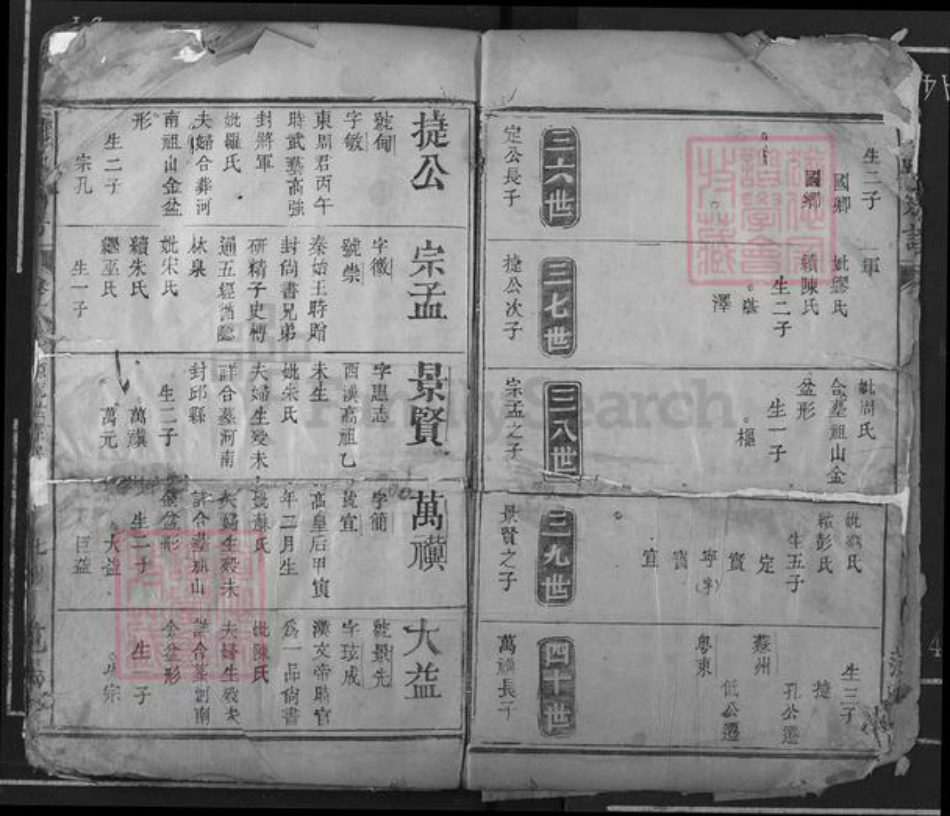 生二子
國卿
三六世
定公長子
軍
妣繆氏
續陳氏
生二子
堪
澤
三七世
捷公次子
妣周氏
合墓祖山金
盆形
生一子
樞
三八世
宗孟之子
續彭氏
生五子
定
寧
宜
三九世
景賢之子
生三子
捷
孔公遷
蘇州
低公遷
粵東
四十世
萬禶長子
捷公
號甸
字敏
東周君丙午
時武藝高強
封將軍
妣羅氏
夫婦合葬河
南祖山金盆
形
生二子
宗孔
宗孟
字徵
號崇
秦始王時贈
封尚書兄弟
研精子史博
通五經循隱
林泉
妣宋氏
續朱氏
繼巫氏
生一子
景賢
字惠志
西漢高祖乙
未生
妣朱氏
夫婦生歿未
詳合墓河南
封邱縣
生二子
萬禶
萬元
萬禶
字簡
號宜
高皇后甲寅
年二月生
妣蘇氏
夫婦生歿未
詳合墓
山
金盆形
生二子
大益
巨益
大益
號景先
字玹成
漢文帝時官
爲一品尚書
妣陳氏
夫婦生歿未
詳合墓
南
金盆形
生 子
宗